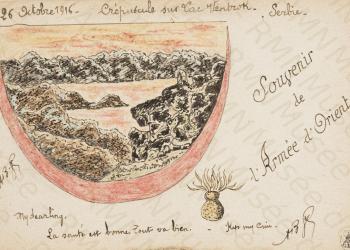 26 Octobre 1916. Crépuscule sur Lac Venbrok. Serbie.
Souvenir
de
l'Armée d'Orient
My dearling.
La santé est bonne. Tout va bien.